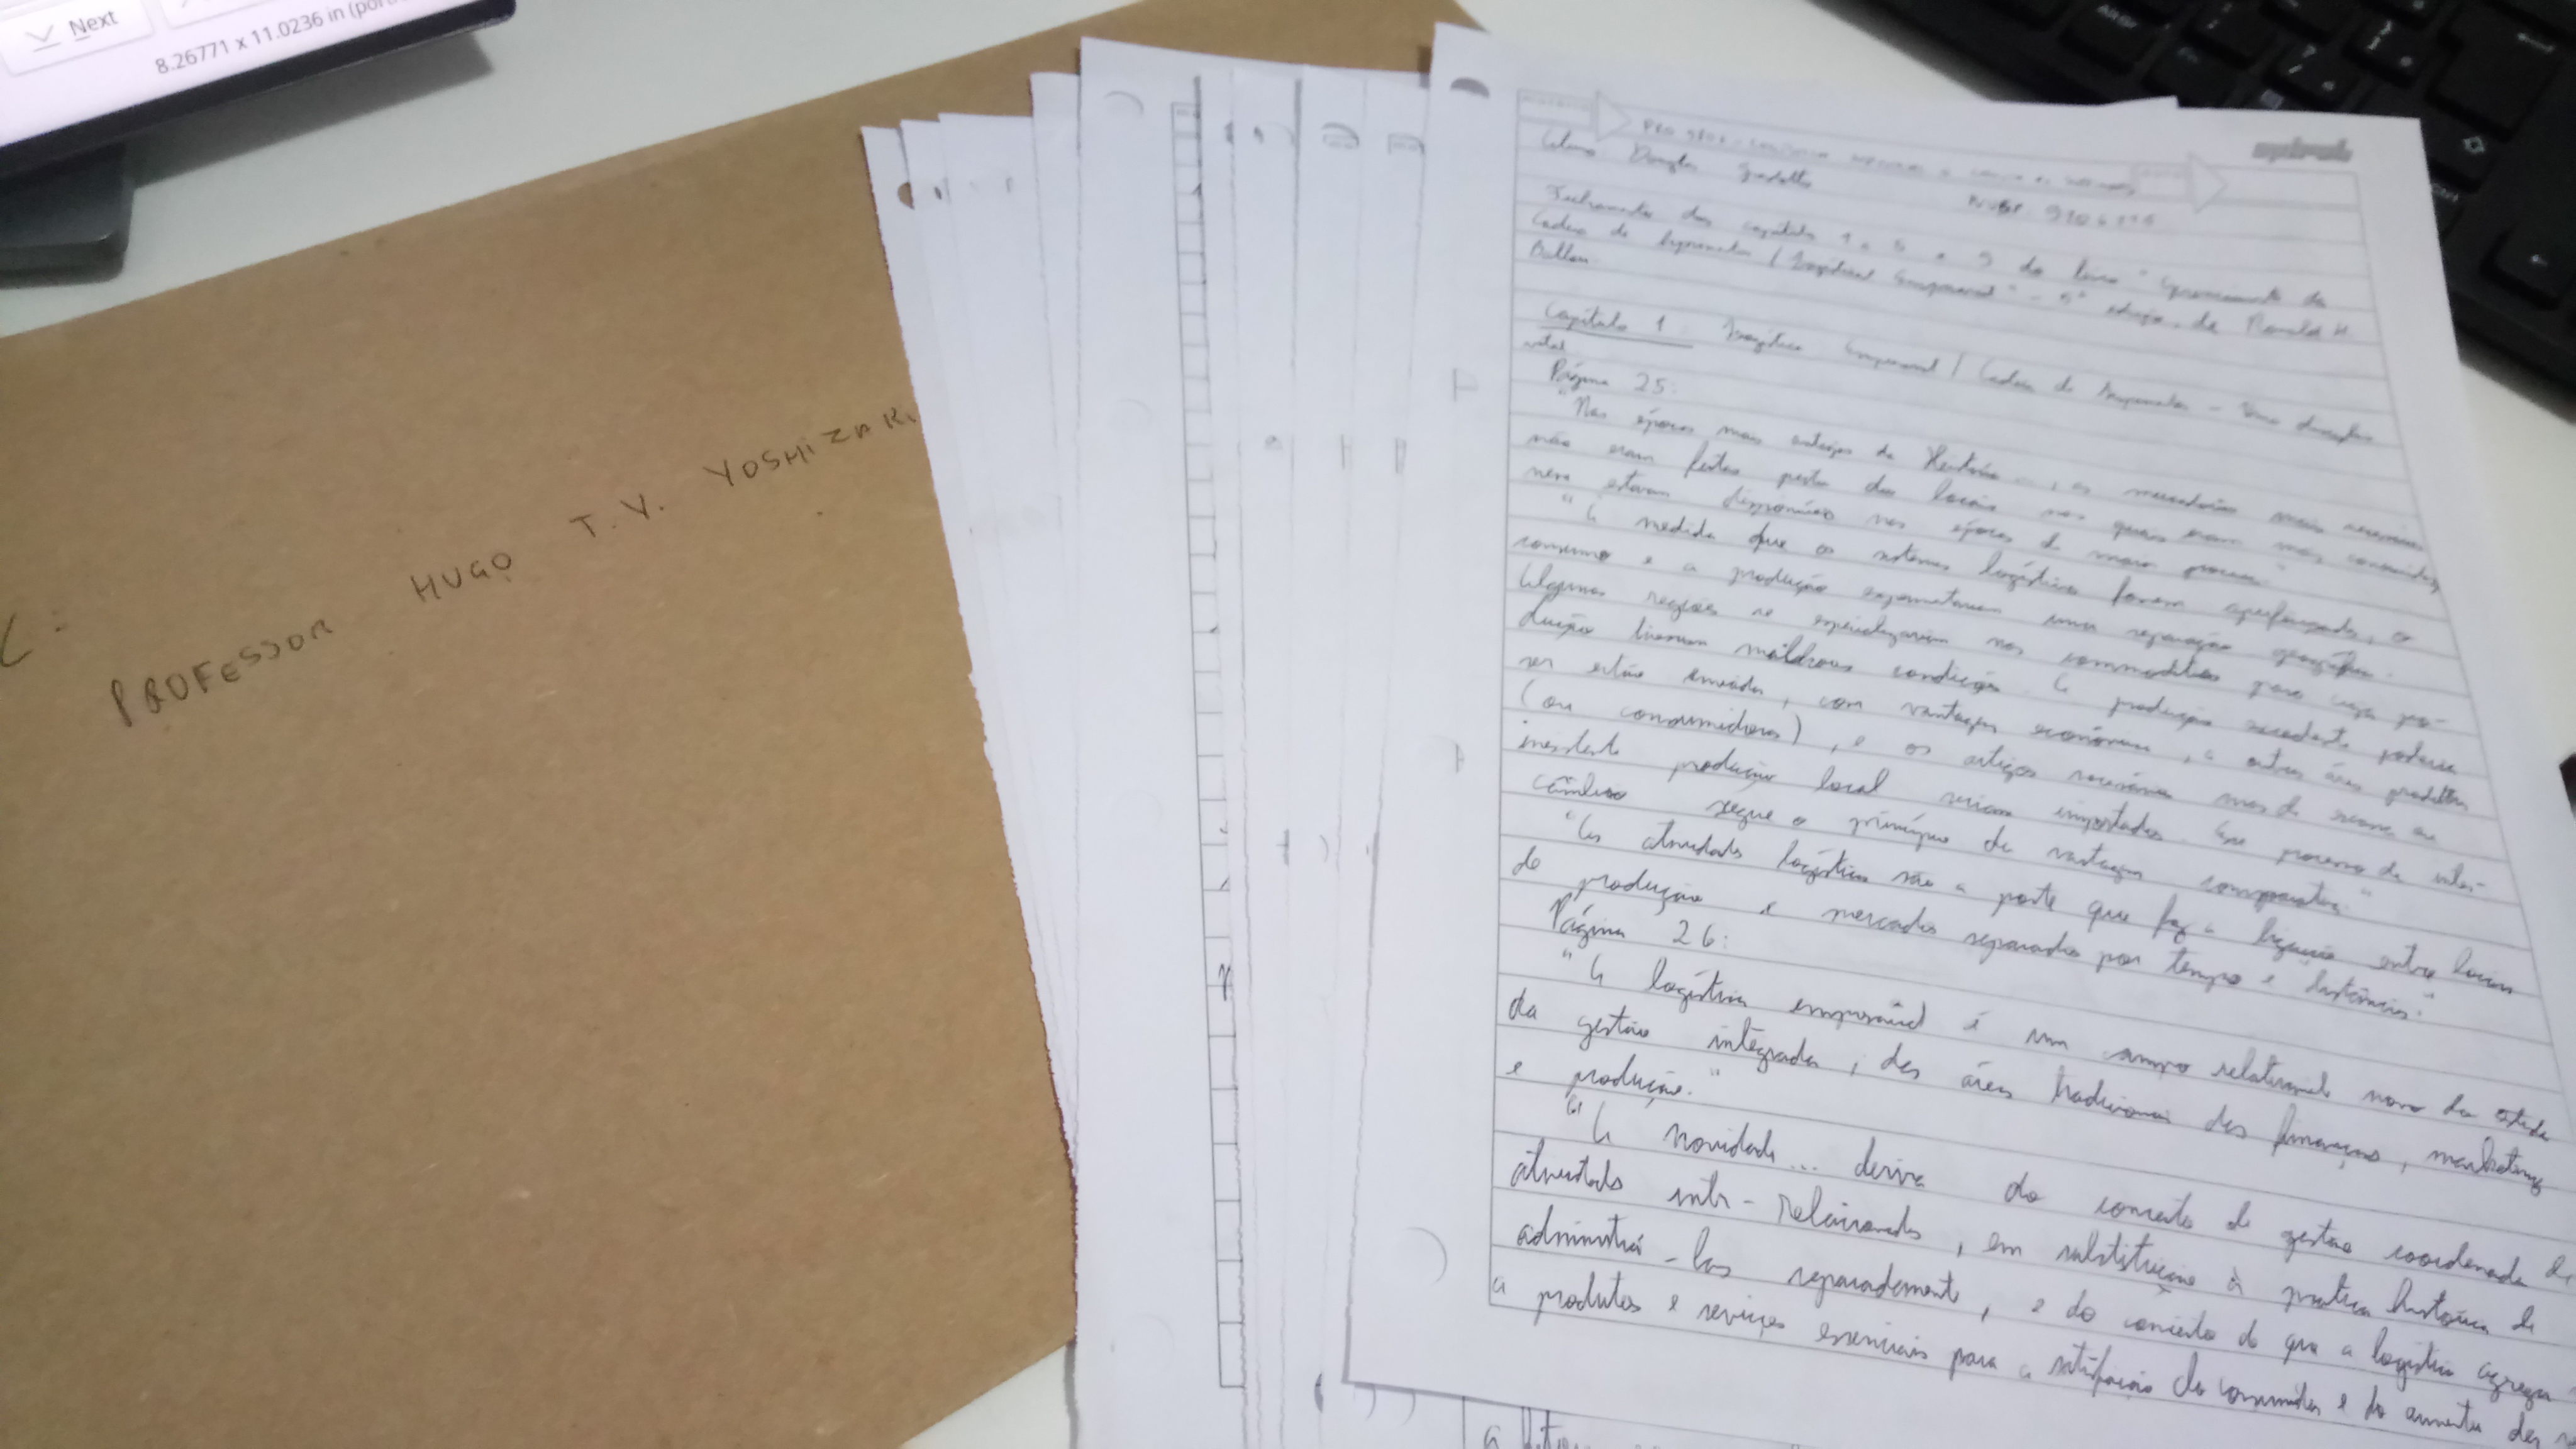 Next
8.26771 x 11.0236 in
PROFESSOR HUGO T. Y. YOSHIZAKI
Aluno: Douglas
Fichamento dos capítulos 1 a 5 e 9 do livro "Gerenciamento da
Cadeia de Suprimentos / Logística Empresarial" - 5ª edição, de Ronald H.
Ballou.
Capítulo 1: Logística Empresarial / Cadeia de Suprimentos - Uma disciplina
vital
Página 25:
"Nas épocas mais antigas da História..., as mercadorias mais necessárias
não eram feitas perto dos locais nos quais eram mais consumidas,
nem estavam disponíveis nas épocas de maior procura."
"À medida que os sistemas logísticos foram aperfeiçoados, o
consumo e a produção experimentaram uma separação geográfica.
Algumas regiões se especializaram nas commodities para cuja pro-
dução tivessem melhores condições. A produção excedente poderia
ser então enviada, com vantagem econômica, a outras áreas produtoras
(ou consumidoras), e os artigos necessários mas de escassa ou
inexistente produção local seriam importados. Esse processo de inter-
câmbio segue o princípio da vantagem comparativa."
"As atividades logísticas são a ponte que faz a ligação entre locais
de produção e mercados separados por tempo e distâncias."
Página 26:
"A logística empresarial é um campo relativamente novo do estudo
da gestão integrada, das áreas tradicionais das finanças, marketing
e produção."
"A novidade... deriva do conceito de gestão coordenada de
atividades inter-relacionadas, em substituição à prática histórica de
administrá-las separadamente, e do conceito de que a logística agrega
a produtos e serviços essenciais para a satisfação do consumidor e do aumento das